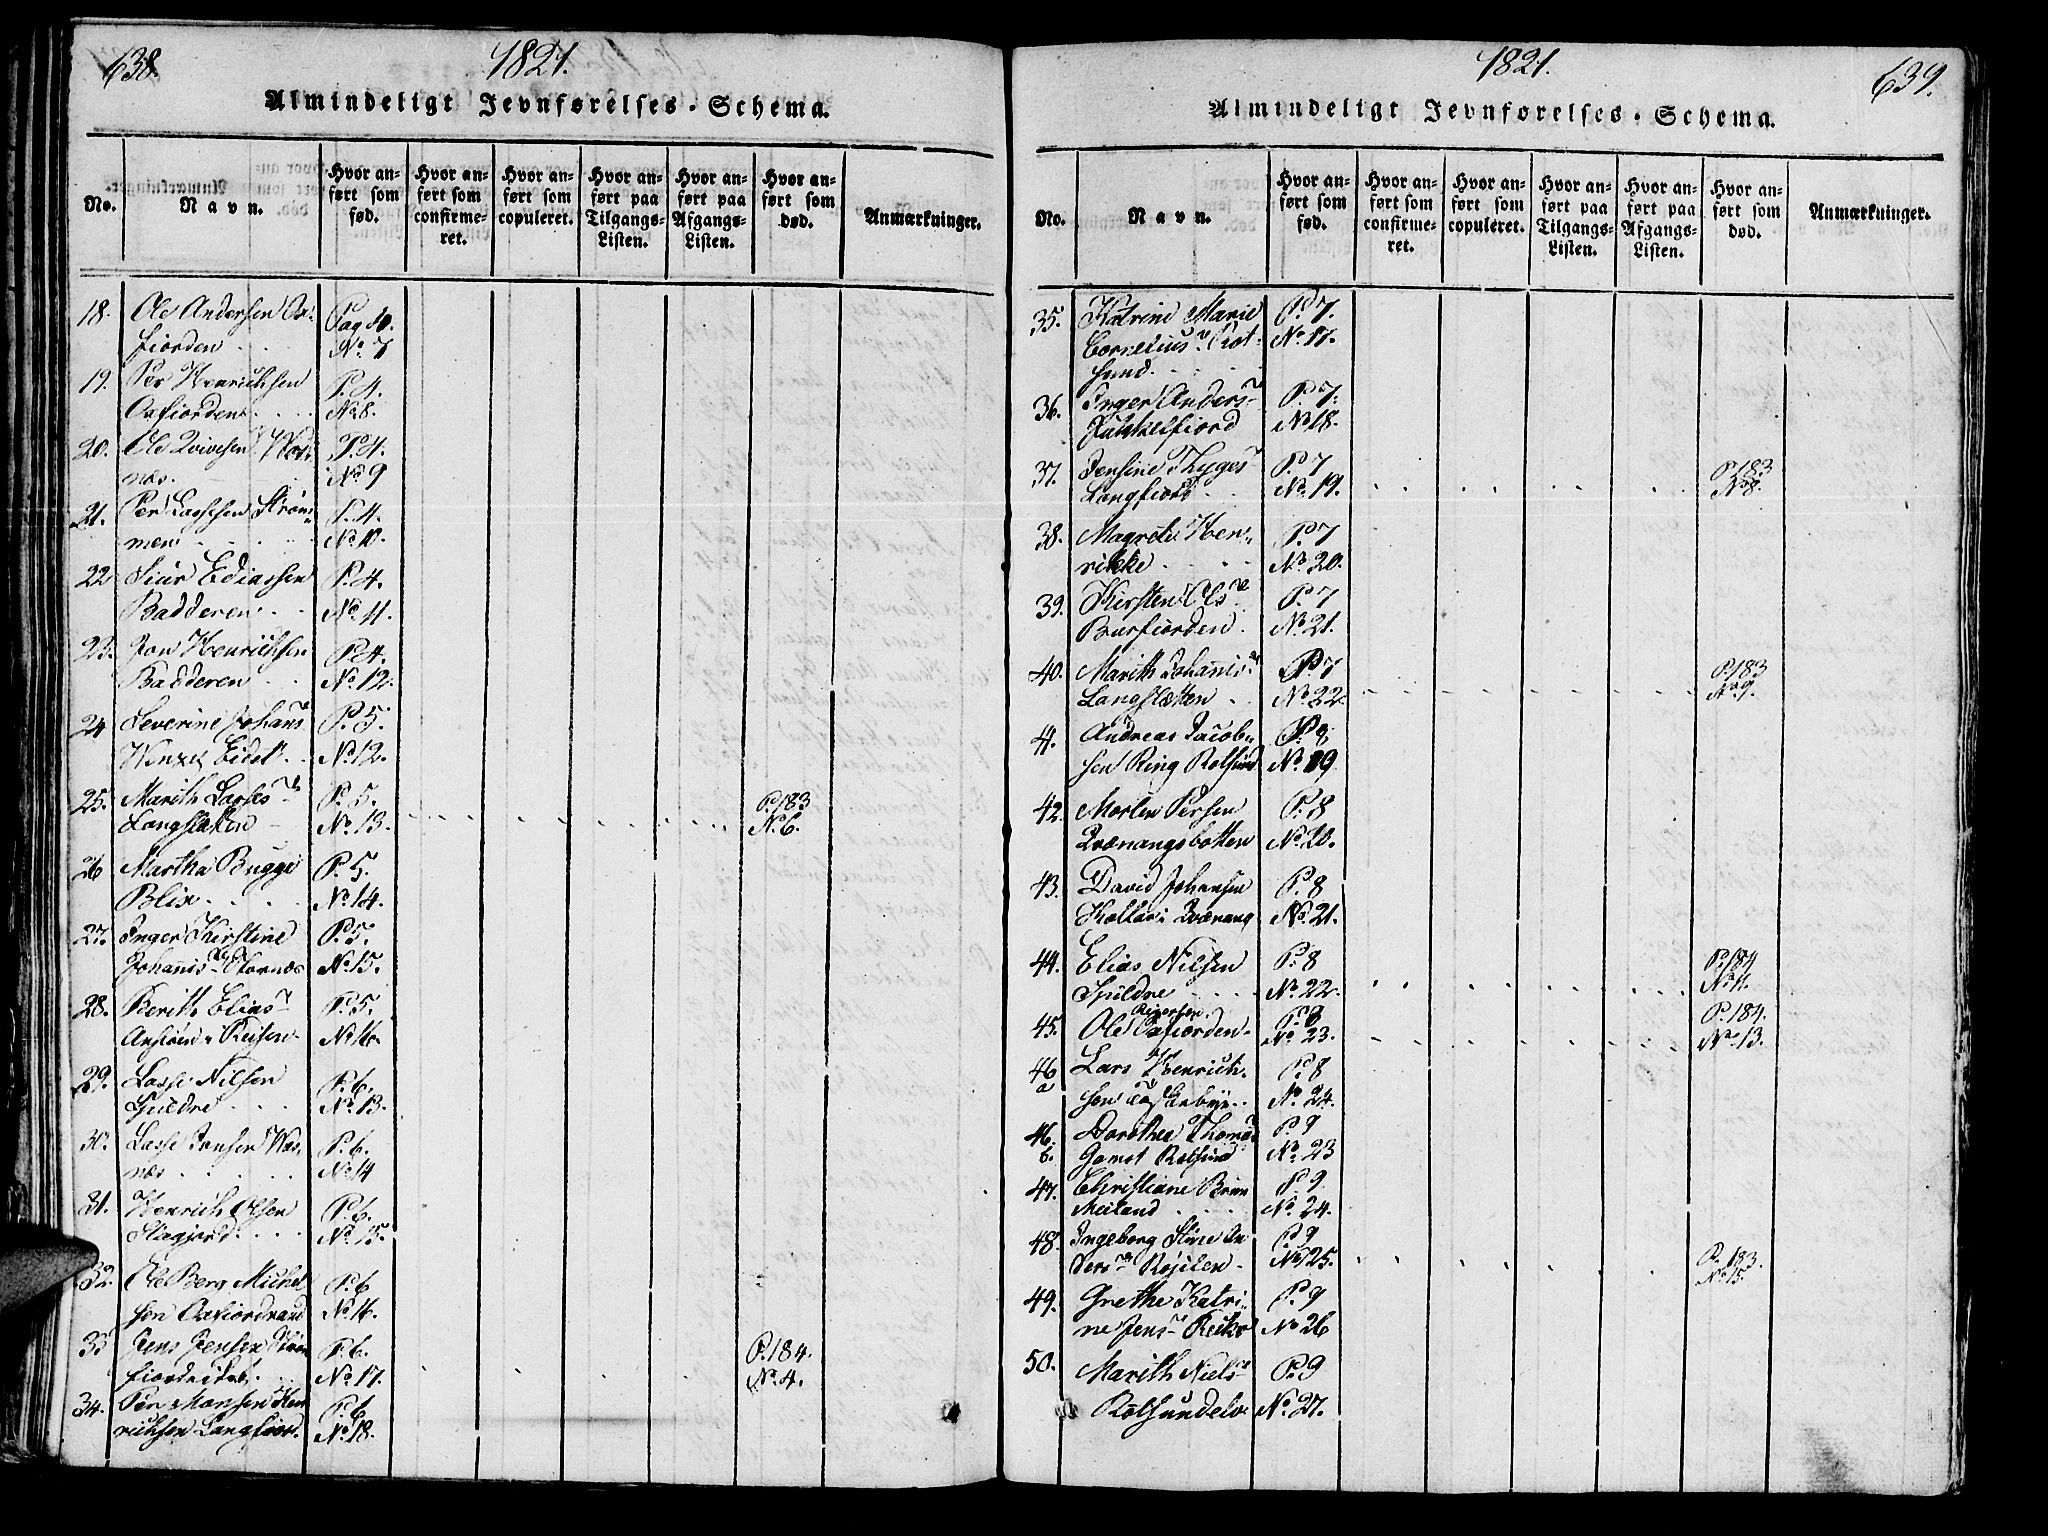 638.
1821.
Almindeligt Jevnførelses-Schema.
No.
Navn.
Hvor anført som fød.
Hvor anført som confirmeret.
Hvor anført som copuleret.
Hvor anført paa Tilgangs-Listen.
Hvor anført paa Afgangs-Listen.
Hvor anført som død.
Anmærkninger.
18. Ole Andersen Ox- Pag 4.
fiorden No. 7
19. Per Henrichsen P. 4.
Oxfiorden No. 8.
20. Ole Qvivesen P. 4.
næs No. 9
21. Per Lassesen Strøm- P. 4.
men No. 10.
22 Siur Ediassen P. 4.
Badderen No. 11.
23. Jon Henrichsen P. 4.
Badderen No. 12.
24 Severine Johans P. 5.
Eidet No. 12.
25. Marith Lasses P. 5. P. 183
Langslætten No. 13. N. 6.
26 Martha Bugge P. 5.
Blix No. 14.
27. Inger Kirstine P. 5.
Johannis Stornæs No. 15.
28. Berith Elias P. 5.
Reisen No. 16.
29. Lasse Nilsen P. 6.
Spildre No. 13.
30. Lasse Jonsen P. 6.
næs No. 14
31. Henrich Olsen P. 6.
No. 15.
32. Ole Berg Michel P. 6
sen No. 16.
33 Jens Jensen P. 6. P. 184.
fiordeidet No. 17. No. 4.
34. Per Monsen Hen P. 6
richsen Langfiord. No. 18.
639.
1821.
Almindeligt Jevnførelses-Schema.
No.
Navn.
Hvor anført som fød.
Hvor anført som confirmeret.
Hvor anført som copuleret.
Hvor anført paa Tilgangs-Listen.
Hvor anført paa Afgangs-Listen.
Hvor anført som død.
Anmærkninger.
35. Katrine Marie P. 7.
Cornelius Rot- No. 17.
sund
36. Inger Anders P. 7.
Jøkkelfiord No. 18.
37. Jensine Thyges P. 7 P. 183
Langfiord No. 19. No. 8.
38. Magrete Hen- P. 7
rikke No. 20.
39. Kirsten Ols P. 7
Burfiorden No. 21.
40. Marith Johannis P. 7 P. 183
Langslætten No. 22. No. 9.
41. Andreas Jacob- P. 8
sen Ring Rotsund No. 19
42. Morten Persen P. 8
Qvænangsbotten No. 20.
43. David Johansen P. 8
Qvænang No. 21.
44. Elias Nilsen P. 8 P. 184
Spildre No. 22. No. 11.
45. Ole Oxfiorden P. 8 P. 184.
No. 23. No. 13.
46 Lars Henrich- P. 8
a sen No. 24.
46. Dorothea Thomas P. 9
b. Gamst Rotsund No. 23
47. Christiane P. 9
Meiland No. 24.
48. Ingeborg Stine An P. 9 P. 183.
ders No. 25. No. 15.
49. Grethe Katri- P. 9
ne Jens No. 26
50. Marith Niels P. 9
Rotsundelv No. 27.